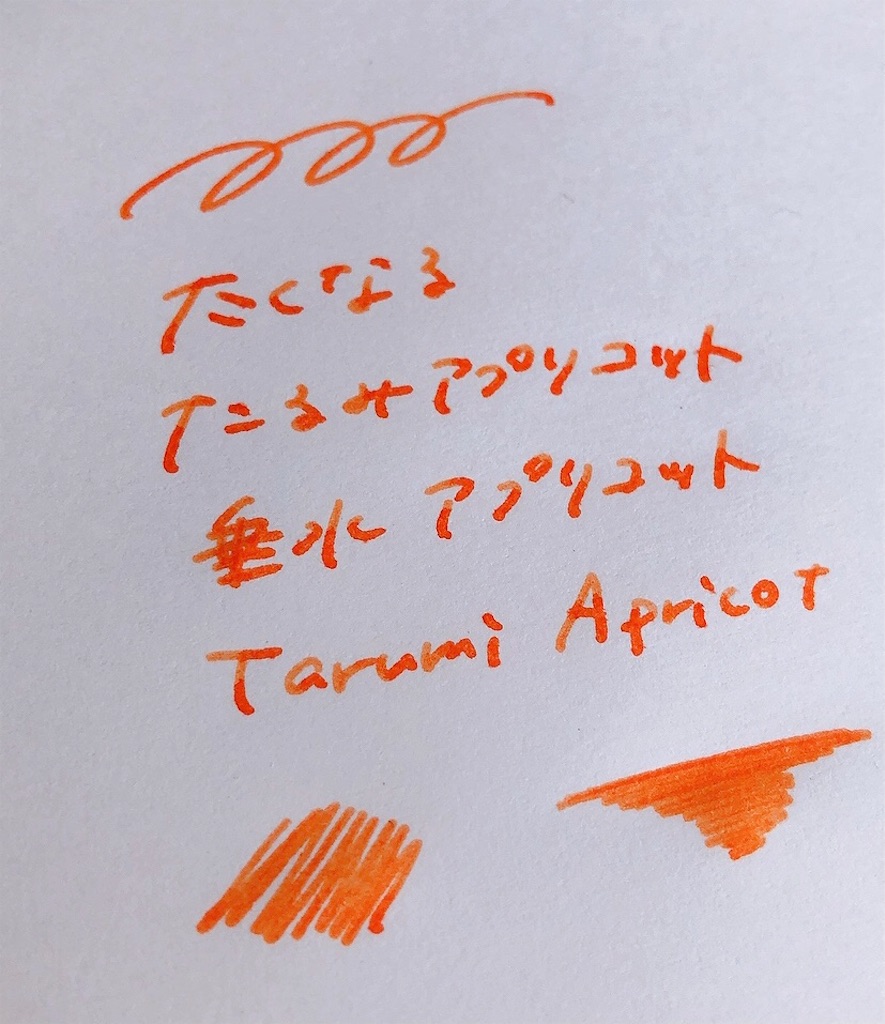 たくなる
たるみアプリコット
垂水 アプリコット
Tarumi Apricot